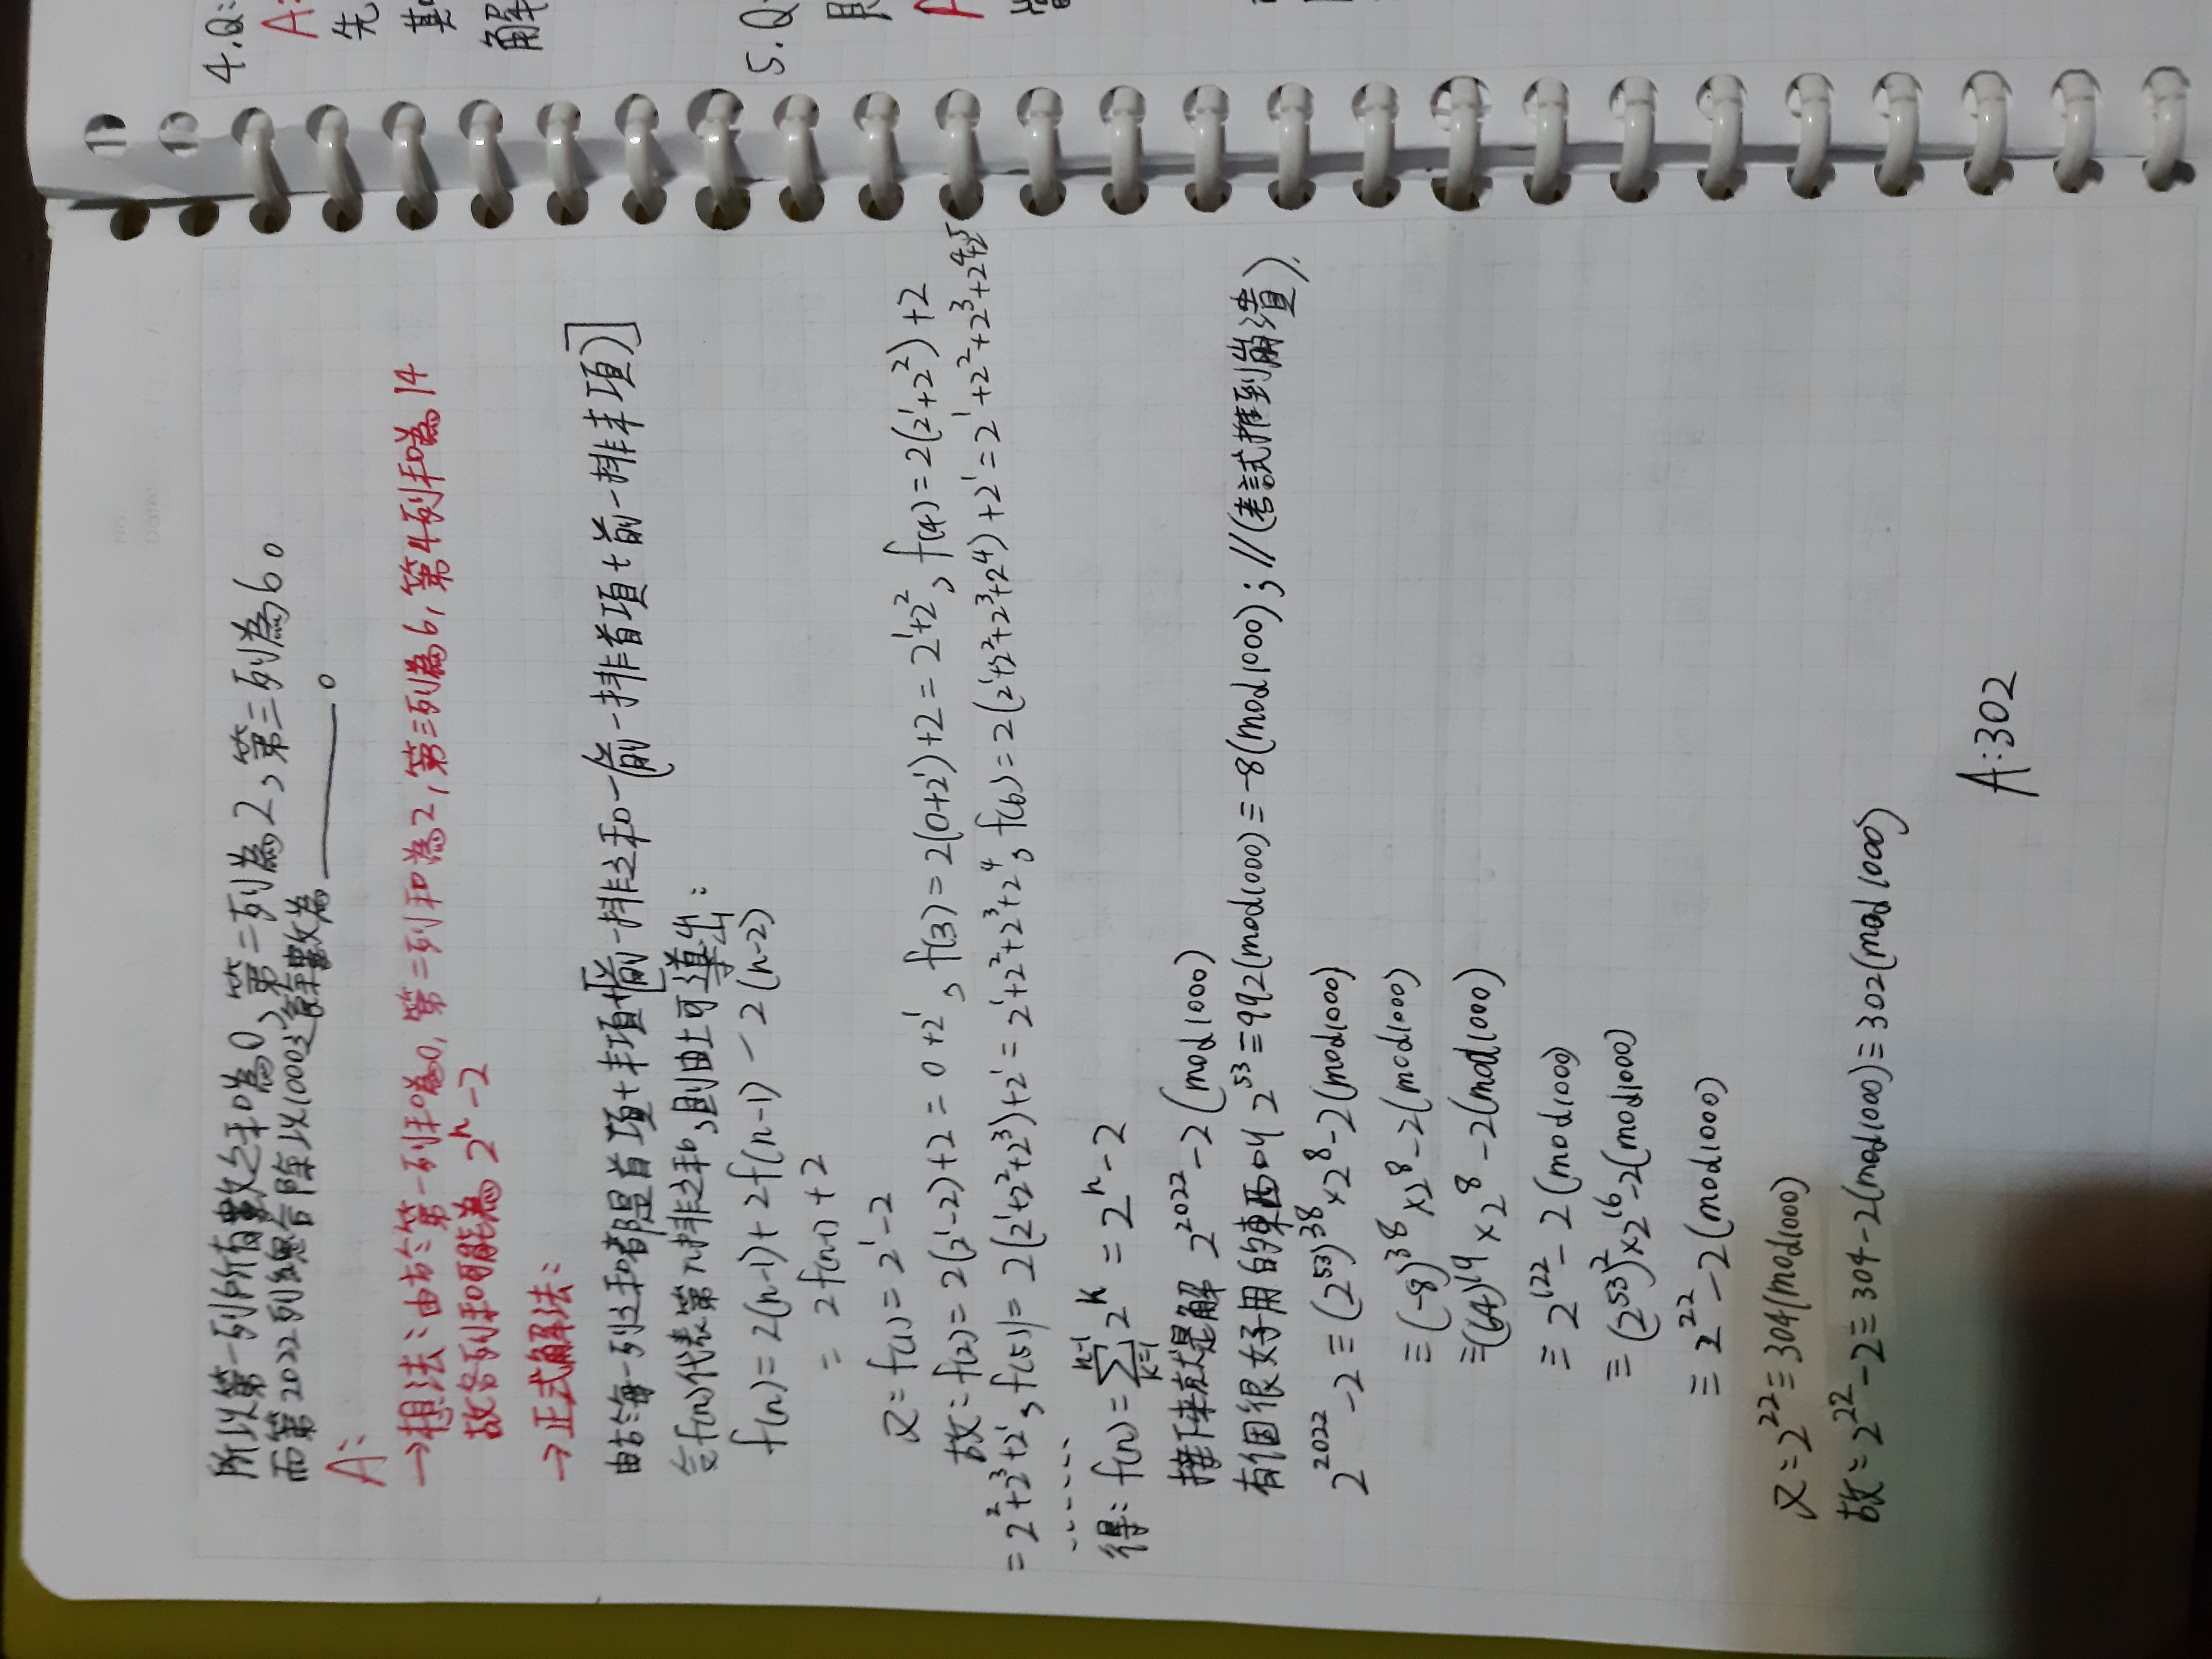 所以第一列所有數之和為0,第二列為2,第三列為6。
而第2022列總合除以1000之餘數為______。
A:
→想法:由於第一列和為0,第二列和為2,第三列為6,第4列和為14
故各列和可能為 2ⁿ-2
→正式解法:
由於每一列之和都是首項+末項+[前一排之和-(前一排首項+前一排末項)]
令f(n)代表第n排之和,則由上可導出:
f(n)=2(n-1)+2f(n-1)-2(n-2)
=2f(n-1)+2
又:f(1)=2¹-2
故:f(2)=2(2¹-2)+2=0+2¹,f(3)=2(0+2¹)+2=2¹+2²,f(4)=2(2¹+2²)+2
=2²+2³+2¹,f(5)=2(2¹+2²+2³)+2¹=2¹+2²+2³+2⁴,f(6)=2(2¹+2²+2³+2⁴)+2¹=2¹+2²+2³+2⁴+2⁵
......
得:f(n)=∑ₖ₌₁ⁿ⁻¹2ᵏ=2ⁿ-2
接下來就是解 2²⁰²²-2(mod1000)
有個很好用的東西叫 2⁵³≡992(mod1000)≡-8(mod1000);//(考試推到崩潰).
2²⁰²²-2≡(2⁵³)³⁸×2⁸-2(mod1000)
≡(-8)³⁸×2⁸-2(mod1000)
≡(64)¹⁹×2⁸-2(mod1000)
≡2¹²²-2(mod1000)
≡(2⁵³)²×2¹⁶-2(mod1000)
≡2²²-2(mod1000)
又:2²²≡304(mod1000)
故:2²²-2≡304-2(mod1000)≡302(mod1000)
A:302
4.Q:
A:
先
其
解
5.Q